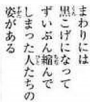 まわりには
黒こげになって
ずいぶん縮んで
しまった人たちの
姿がある